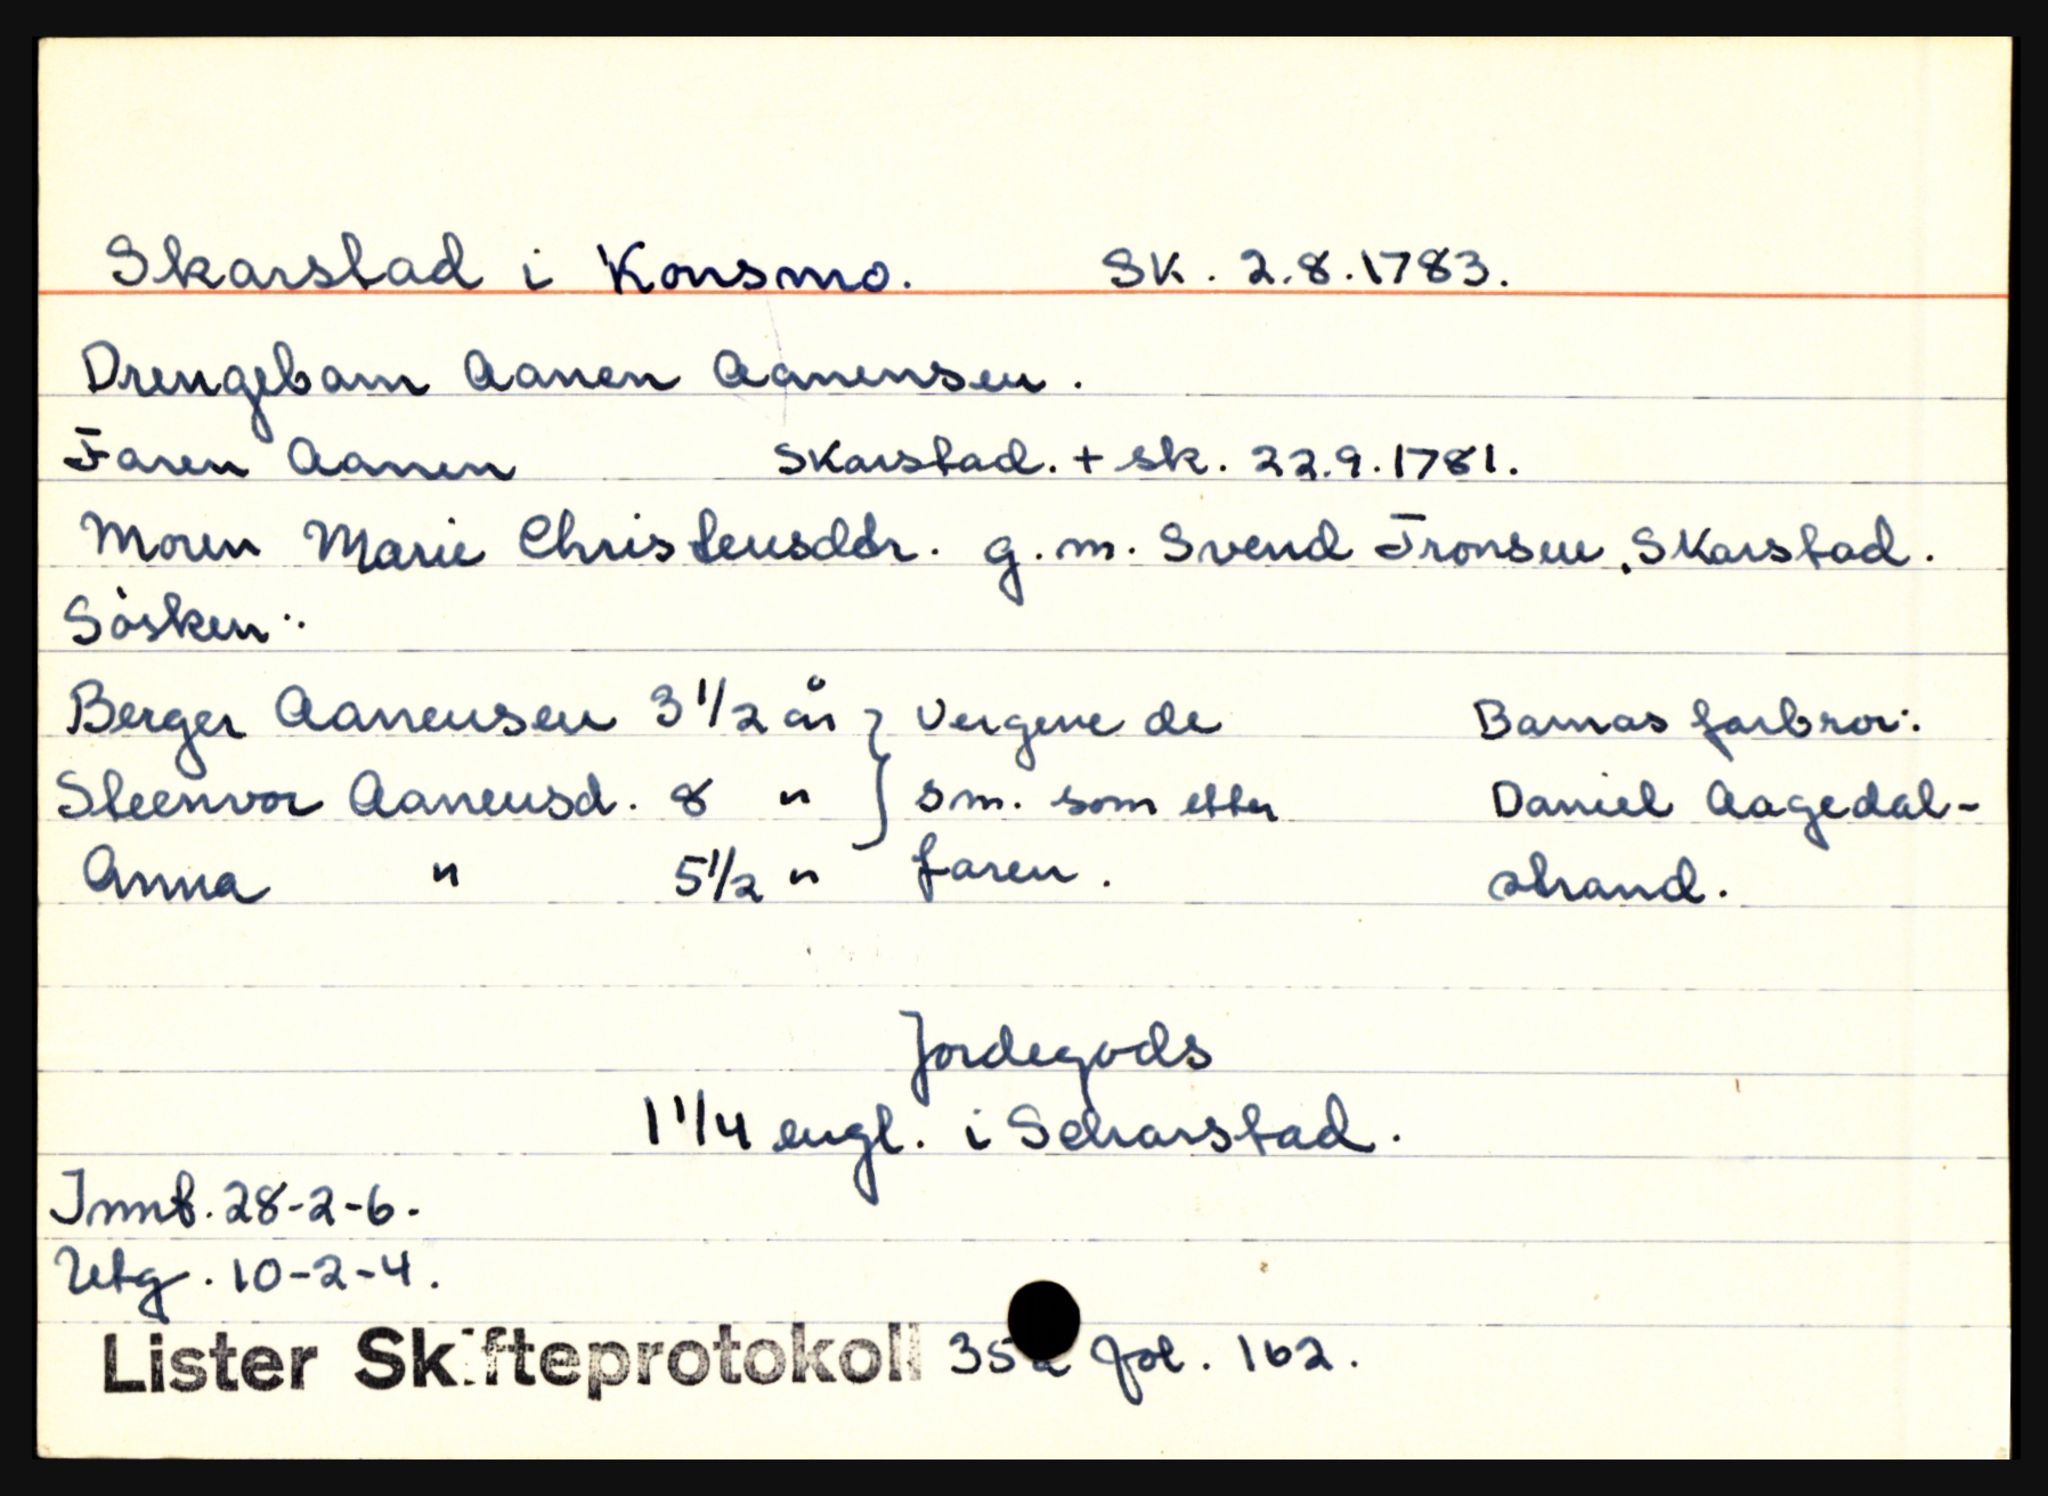 Skarstad i Konsmo. SK. 2.8.1783.
Drengebarn Aanen Aanensen.
Faren Aanen Skarstad. + sk. 22.9.1781.
Moren Marie Christensddr. g.m. Svend Tronsen, Skarstad.
Søsken:
Berger Aanensen 3 1/2 år } Vergene de Barnas farbror:
Steenvor Aanensd. 8 " } sm. som etter Daniel Aagedal-
Anna " 5 1/2 " faren. strand.
Jordegods
1 1/4 engl. i Scharstad.
Innt. 28-2-6.
Utg. 10-2-4.
Lister Skifteprotokoll 35a fol. 162.